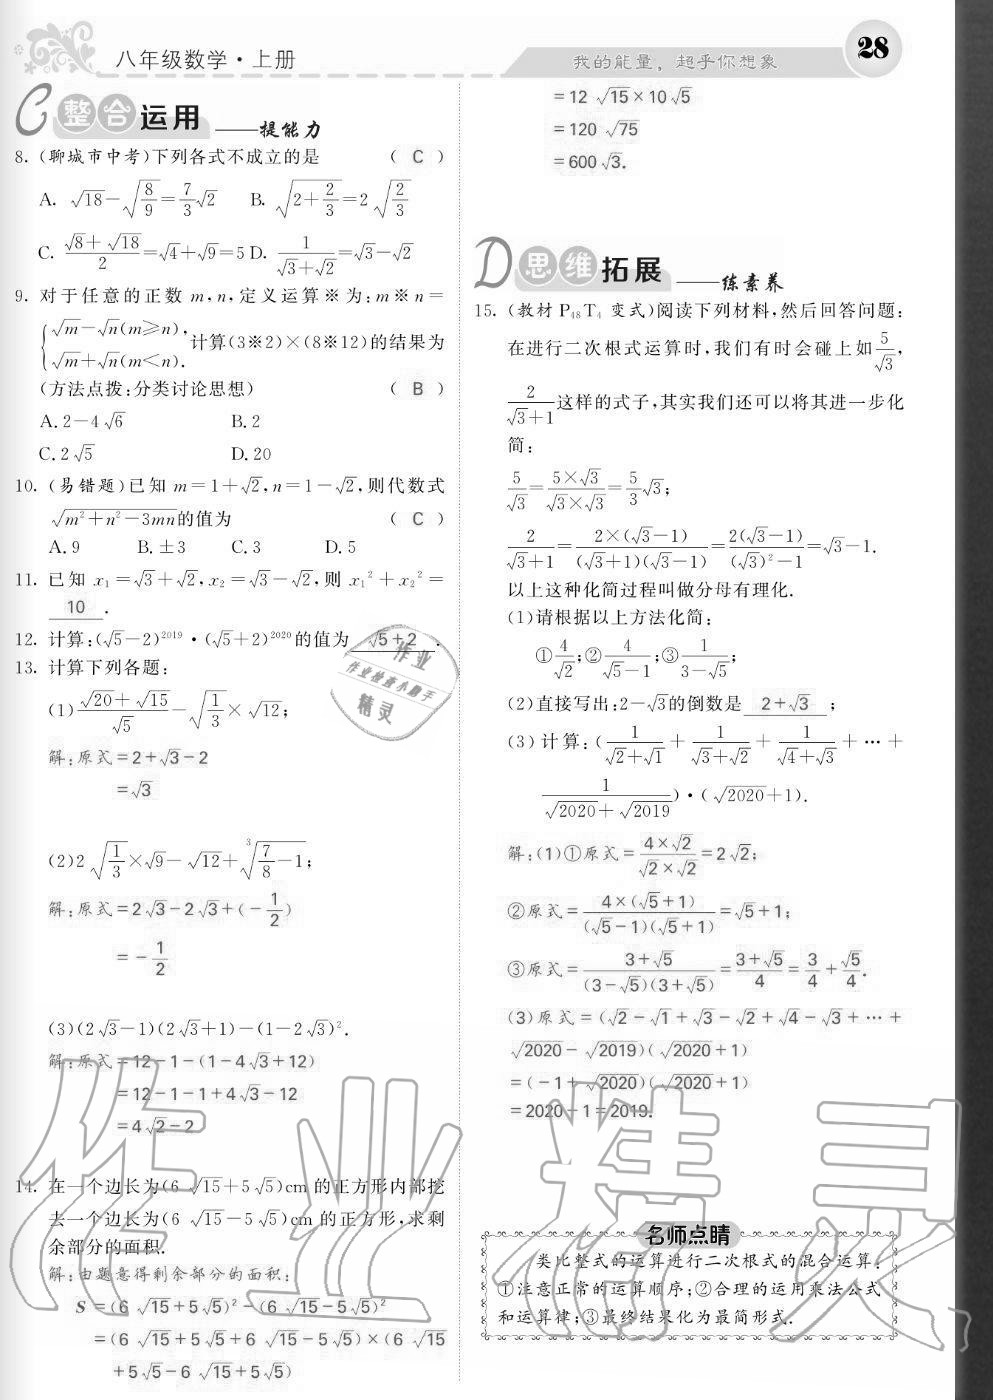 八年级数学·上册
我的能量，超乎你想象
28
C 整合运用 ——提能力
8. (聊城市中考)下列各式不成立的是 ( C )
A. √18-√(8/9)=(7/3)√2 B. √(2+2/3)=2√(2/3)
C. (√8+√18)/2=√4+√9=5 D. 1/(√3+√2)=√3-√2
9. 对于任意的正数 m,n,定义运算※为:m※n=
{√m-√n(m≥n),
√m+√n(m<n). 计算(3※2)×(8※12)的结果为
(方法点拨:分类讨论思想) ( B )
A. 2-4√6 B. 2
C. 2√5 D. 20
10. (易错题)已知 m=1+√2,n=1-√2,则代数式
√(m²+n²-3mn)的值为 ( C )
A. 9 B. ±3 C. 3 D. 5
11. 已知 x₁=√3+√2,x₂=√3-√2,则 x₁²+x₂²=
10 .
12. 计算:(√5-2)²⁰¹⁹·(√5+2)²⁰²⁰的值为 √5+2 .
13. 计算下列各题:
(1) (√20+√15)/√5-√(1/3)×√12;
解:原式=2+√3-2
=√3
(2) 2√(1/3)×√9-√12+∛(7/8-1);
解:原式=2√3-2√3+(-1/2)
=-1/2
(3)(2√3-1)(2√3+1)-(1-2√3)².
解:原式=12-1-(1-4√3+12)
=12-1-1+4√3-12
=4√2-2
14. 在一个边长为(6√15+5√5)cm 的正方形内部挖
去一个边长为(6√15-5√5)cm 的正方形,求剩
余部分的面积.
解:由题意得剩余部分的面积:
S=(6√15+5√5)²-(6√15-5√5)²
=(6√15+5√5+6√15-5√5)×(6√15
+5√5-6√15+5√5)
=12√15×10√5
=120√75
=600√3.
D 思维拓展 ——练素养
15. (教材 P₄₈T₄ 变式)阅读下列材料,然后回答问题:
在进行二次根式运算时,我们有时会碰上如5/√3,
2/(√3+1)这样的式子,其实我们还可以将其进一步化
简:
5/√3=(5×√3)/(√3×√3)=(5/3)√3;
2/(√3+1)=2×(√3-1)/((√3+1)(√3-1))=2(√3-1)/((√3)²-1)=√3-1.
以上这种化简过程叫做分母有理化.
(1)请根据以上方法化简:
①4/√2;②4/(√5-1);③1/(3-√5);
(2)直接写出:2-√3的倒数是 2+√3 ;
(3)计算:(1/(√2+√1)+1/(√3+√2)+1/(√4+√3)+…+
1/(√2020+√2019))·(√2020+1).
解:(1)①原式=(4×√2)/(√2×√2)=2√2;
②原式=4×(√5+1)/((√5-1)(√5+1))=√5+1;
③原式=(3+√5)/((3-√5)(3+√5))=(3+√5)/4=3/4+√5/4.
(3)原式=(√2-√1+√3-√2+√4-√3+…+
√2020-√2019)(√2020+1)
=(-1+√2020)(√2020+1)
=2020-1=2019.
名师点睛
类比整式的运算进行二次根式的混合运算:
①注意正常的运算顺序;②合理的运用乘法公式
和运算律;③最终结果化为最简形式.
作业
作业检查小助手
精灵
作业精灵